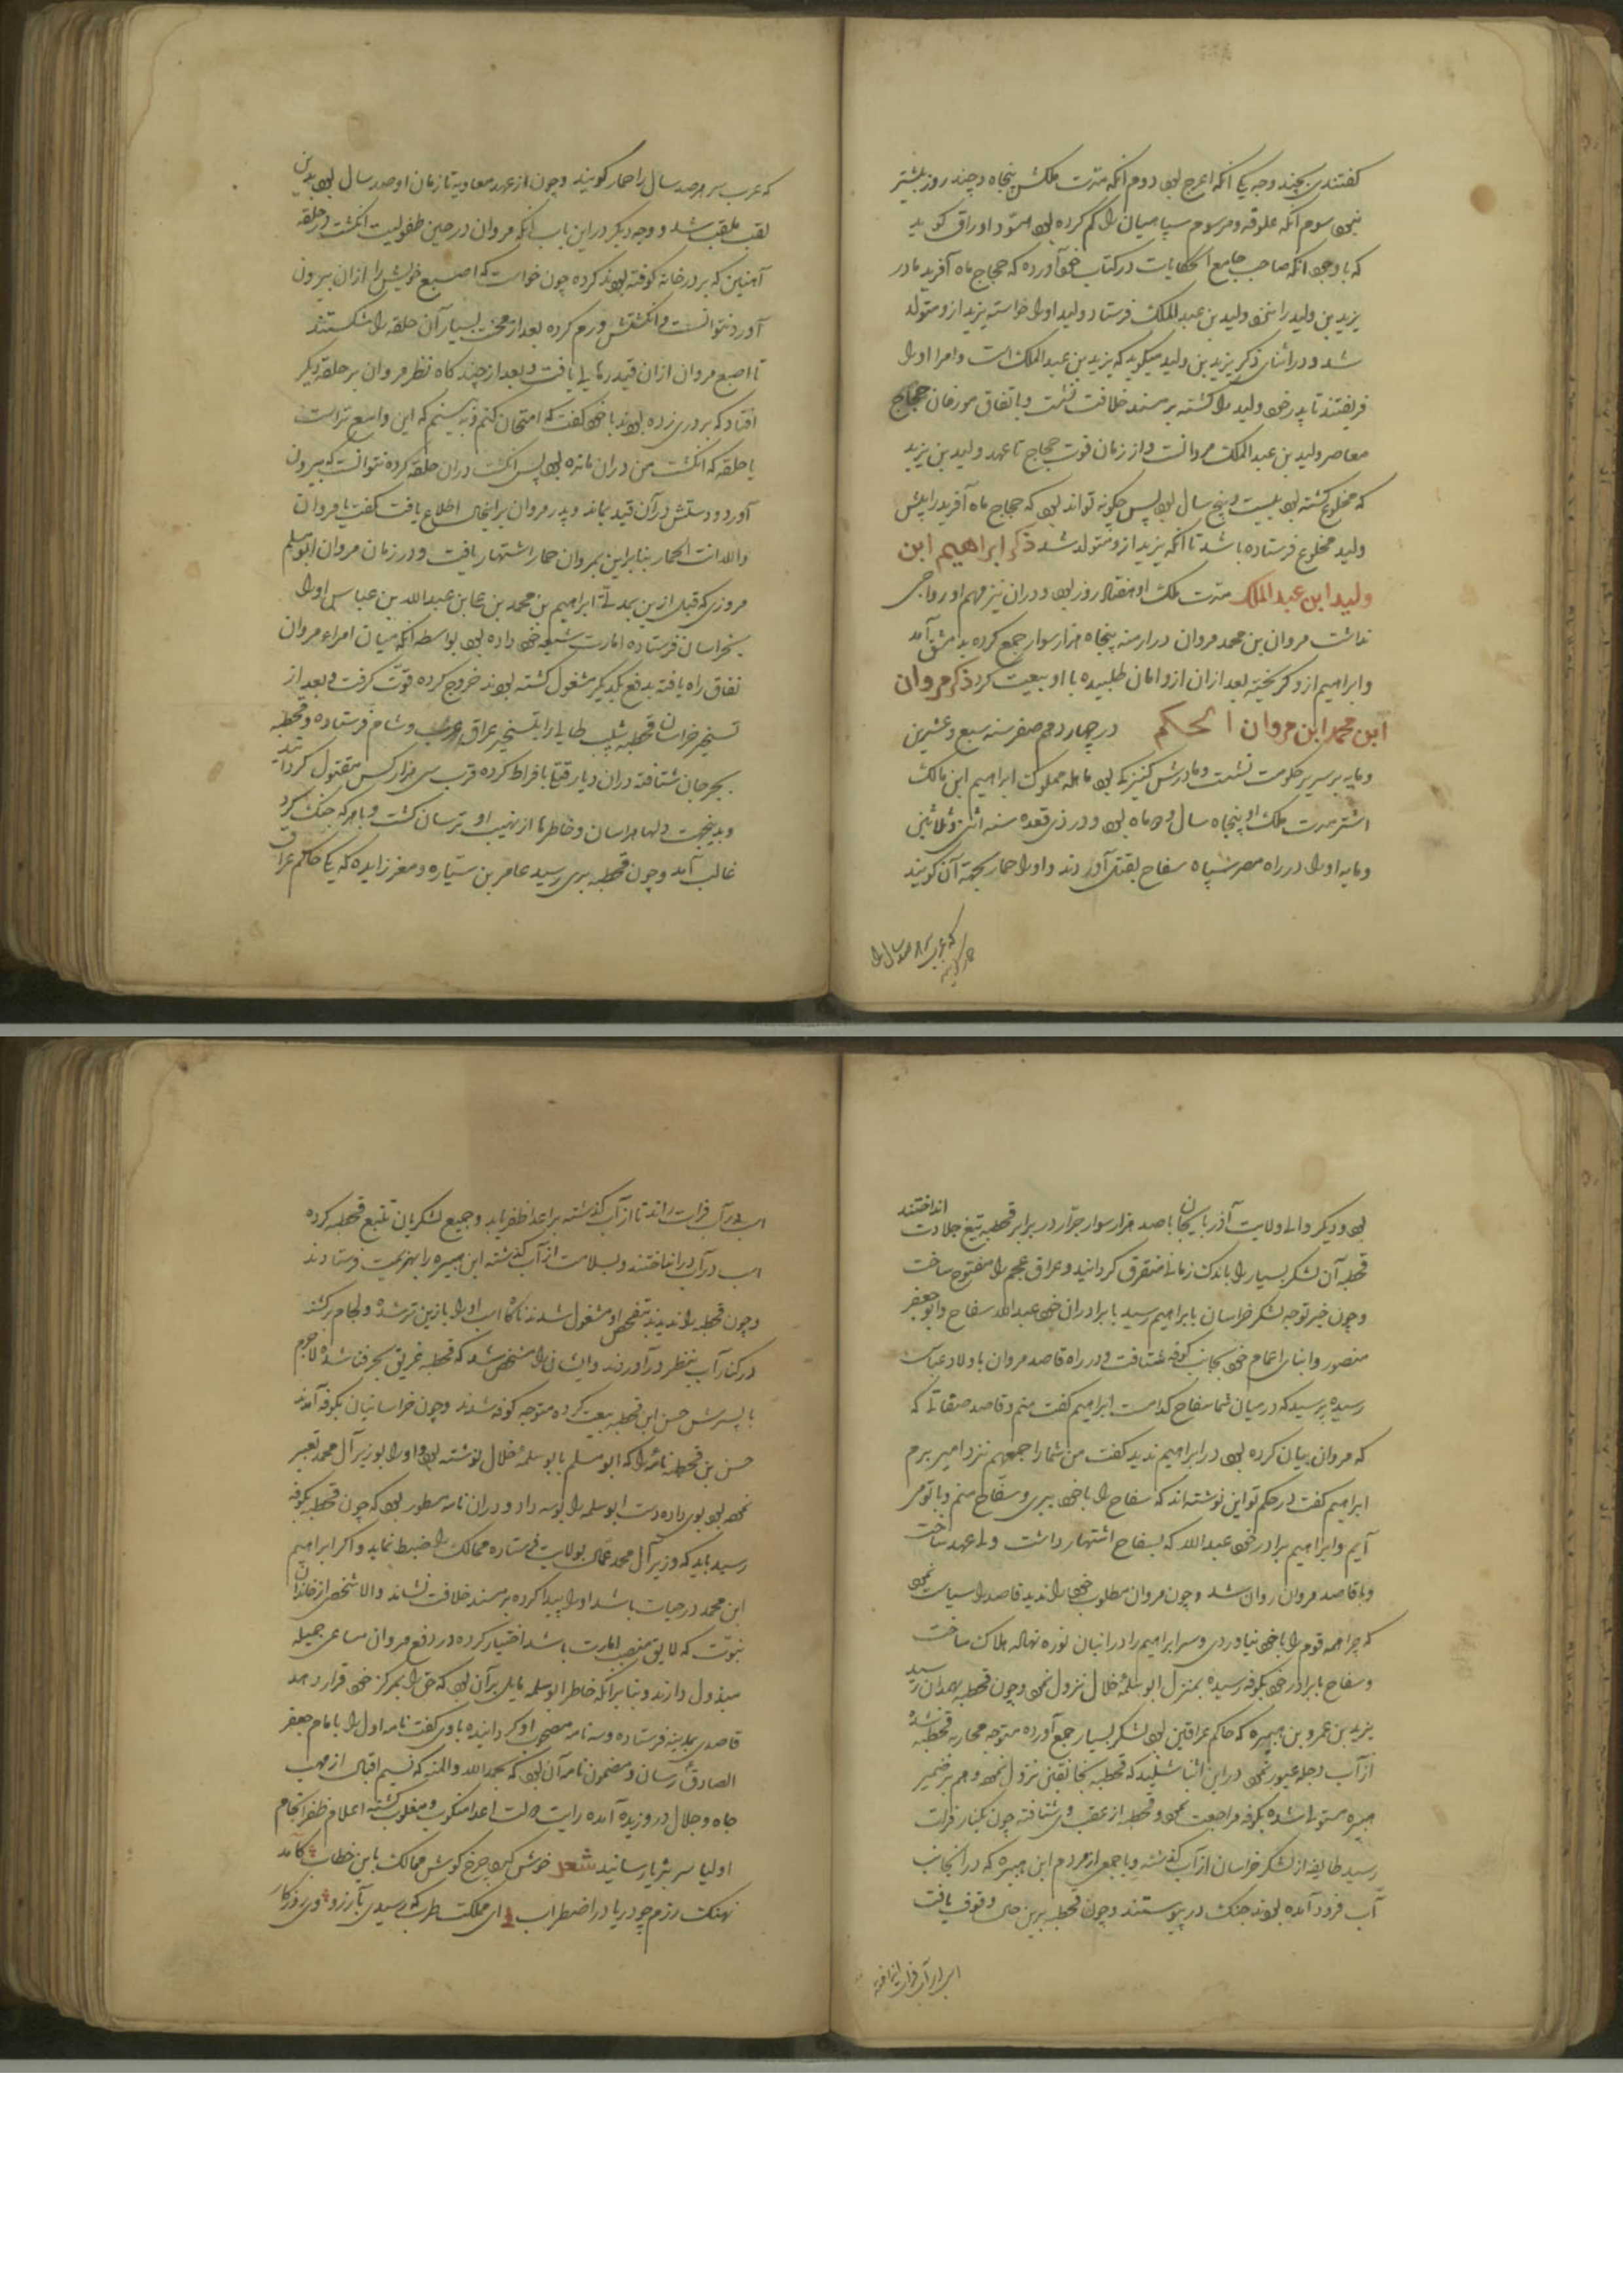 گفتندی بچند وجه یکی انکه اعرج بود دوم انکه مدت ملکش پنجاه و چند روز بیشتر
نبود سوم انکه علوفه و مرسوم سپاهیان را کم کرده بود مسود اوراق گوید
که با وجود انکه صاحب جامع الحکایات در کتاب خود آورده که حجاج ماه آفرید مادر
یزید بن ولید را نزد ولید بن عبد الملک فرستاد و ولید او را خواسته یزید ازو متولد
شد و در اثنای ذکر یزید بن ولید میگوید که یزید بن عبد الملک است و امرا او را
فریفتند تا پدر خود ولید را کشته بر مسند خلافت نشست و باتفاق مورخان حجاج
معاصر ولید بن عبد الملک مروانست و از زمان فوت حجاج تا عهد ولید بن یزید
که مخلوع گشته بود بیست و پنج سال بود پس چگونه تواند بود که حجاج ماه آفرید را پیش
ولید مخلوع فرستاده باشد تا آنکه یزید ازو متولد شد ذکر ابراهیم ابن
ولید ابن عبد الملک مدت ملک او هفتاد روز بود و دران نیز مهم او رواجی
نداشت مروان بن محمد مروان در ارمنه پنجاه هزار سوار جمع کرده بدمشق آمد
و ابراهیم ازو گریخته بعد ازان ازو امان طلبیده با او بیعت کرد ذکر مروان
ابن محمد ابن مروان الحکم در چهاردهم صفر سنه سبع و عشرین
و مایه بر سریر حکومت نشست و مادرش کنیزکی بود حامله مملوک ابراهیم ابن مالک
اشتر مدت ملک او پنجاه سال و ده ماه بود و در ذی قعده سنه اثنی و ثلاثین
و مایه او را در راه مصر سپاه سفاح بقتل آوردند و او را حمار بجهة آن گویند
که عرب سر هر صد سال را
حمار گویند
که عرب سر هر صد سال را حمار گویند و چون از عهد معاویه تا زمان او صد سال بود بدین
لقب ملقب شد و وجه دیگر دراین باب انکه مروان در حین طفولیت انگشت در حلقه
آهنین که بر در خانه کوفته بودند کرده چون خواست که اصبع خویش را ازان بیرون
آورد نتوانست و انگشتش ورم کرده بعد از محنت بسیار آن حلقه را شکستند
تا اصبع مروان ازان قید رهایی یافت و بعد از چند گاه نظر مروان بر حلقه دیگر
افتاد که بر دری زده بودند با خود گفت که امتحان کنم و ببینم که این واسع تر است
یا حلقه که انگشت من دران مانده بود پس انگشت دران حلقه کرده نتوانست که بیرون
آورد و دستش در آن قید بماند و پدر مروان برانحال اطلاع یافت گفت یا مروان
والله انت الحمار بنابراین بمروان حمار اشتهار یافت و در زمان مروان ابو مسلم
مروزی که قبل ازین بمدتی ابراهیم بن محمد بن علی بن عبدالله بن عباس او را
بخراسان فرستاده امارت شیعه خود داده بود بواسطه آنکه میان امراء مروان
نفاق راه یافته بدفع یکدیگر مشغول گشته بودند خروج کرده قوت گرفت و بعد از
تسخیر خراسان قحطبه بن شبیب طایی را بتسخیر عراق عرب و شام فرستاده و قحطبه
بجرجان شتافته دران دیار قتلی بافراط کرده قرب سی هزار کس مقتول گردانید
و بدینجهت دلها هراسان و خاطرها از نهیب او ترسان گشت و با هر که جنگ کرد
غالب آمد و چون قحطبه بری رسید عامر بن سیاره و معمر زایده که یکی حاکم عراق
بود و دیگر والی ولایت آذربایجان با صد هزار سوار جرار در برابر قحطبه تیغ جلادت انداختند
قحطبه آن لشکر بسیار را باندک زمانی متفرق گردانید و عراق عجم را مفتوح ساخت
و چون خبر توجه لشکر خراسان بابراهیم رسید با برادران خود عبدالله سفاح و ابو جعفر
منصور و ابنای اعمام خود بجانب کوفه شتافت و در راه قاصد مروان باولاد عباس
رسیده پرسید که در میان شما سفاح کدامست ابراهیم گفت منم و قاصد صفاتی که
که مروان بیان کرده بود در ابراهیم ندید گفت من شما را جمعهم نزد امیر برم
ابراهیم گفت در حکم تو این نوشته اند که سفاح را با خود ببری و سفاح منم و با تو می
آیم و ابراهیم برادر خود عبدالله که بسفاح اشتهار داشت ولی عهد ساخت
و با قاصد مروان روان شد و چون مروان مطلوب خود را ندید قاصد را سیاست نمود
که چرا همه قوم را با خود نیاوردی و سر ابراهیم را در انبان نوره نهاده هلاک ساخت
و سفاح با برادر خود بکوفه رسیده بمنزل ابو سلمه خلال نزول نمود و چون قحطبه بهمدان رسید
یزید بن عمرو بن هبیره که حاکم عراقین بود لشکر بسیار جمع آورده متوجه محاربه قحطبه شده
از آب دجله عبور نمود در این اثنا شنید که قحطبه بخانقین نزول نمود و هم بر ضمیر
هبیره مستولی شده بکوفه مراجعت نمود و قحطبه از عقب وی شتافته چون بکنار فرات
رسید طایفه از لشکر خراسان از آب گذشته و با جمعی از مردم ابن هبیره که در انجانب
آب فرود آمده بودند جنگ در پیوستند و چون قحطبه برین حال وقوف یافت
اسب در آب فرات راند تا از آب گذشته بر اعدا ظفر یابد و جمیع لشکریان تتبع قحطبه کرده
اسب در آب در انداختند و بسلامت از آب گذشته ابن هبیره را بهزیمت فرستادند
و چون قحطبه را ندیدند بتفحص او مشغول شدند ناگاه اسب او را با زین تر شده و لجام بر کشند
در کنار آب بنظر درآوردند و ایشان را مشخص شد که قحطبه غریق بحر فنا شده لاجرم
با پسرش حسن ابن قحطبه بیعت کرده متوجه کوفه شدند و چون خراسانیان بکوفه آمدند
حسن بن قحطبه نامه را که ابو مسلم بابو سلمه خلال نوشته بود و او را بوزیر آل محمد تعبیر
نموده بود بوی داده دست ابو سلمه را بوسه داد و دران نامه مسطور بود که چون قحطبه بکوفه
رسید باید که وزیر آل محمد عمال بولایت فرستاده ممالک را ضبط نماید و اگر ابراهیم
ابن محمد در حیات باشد او را پیدا کرده بر مسند خلافت نشاند والا شخصی از خاندان
نبوت که لایق منصب امارت باشد اختیار کرده در دفع مروان مساعی جمیله
مبذول دارند و بنابر انکه خاطر ابو سلمه مایل بر آن بود که حق را بمرکز خود قرار دهد
قاصدی بمدینه فرستاده و سه نامه مصحوب او گردانیده باوی گفت نامه اول را بامام جعفر
الصادق رسان و مضمون نامه آن بود که بحمدالله والمنه که نسیم اقبال از مهب
جاه و جلال در وزیدن آمده رایت دولت اعدا منکوب و مغلوب گشته اعلام ظفر انجام
اولیا سر بثریا رسانید شعر خوش کرده چرخ گوش ممالک باین خطاب کامد
نهنگ رزم چو دریا در اضطراب ای مملکت طرب که رسیدی بآرزو وی روزگار
اسب در آب فرات انداخته